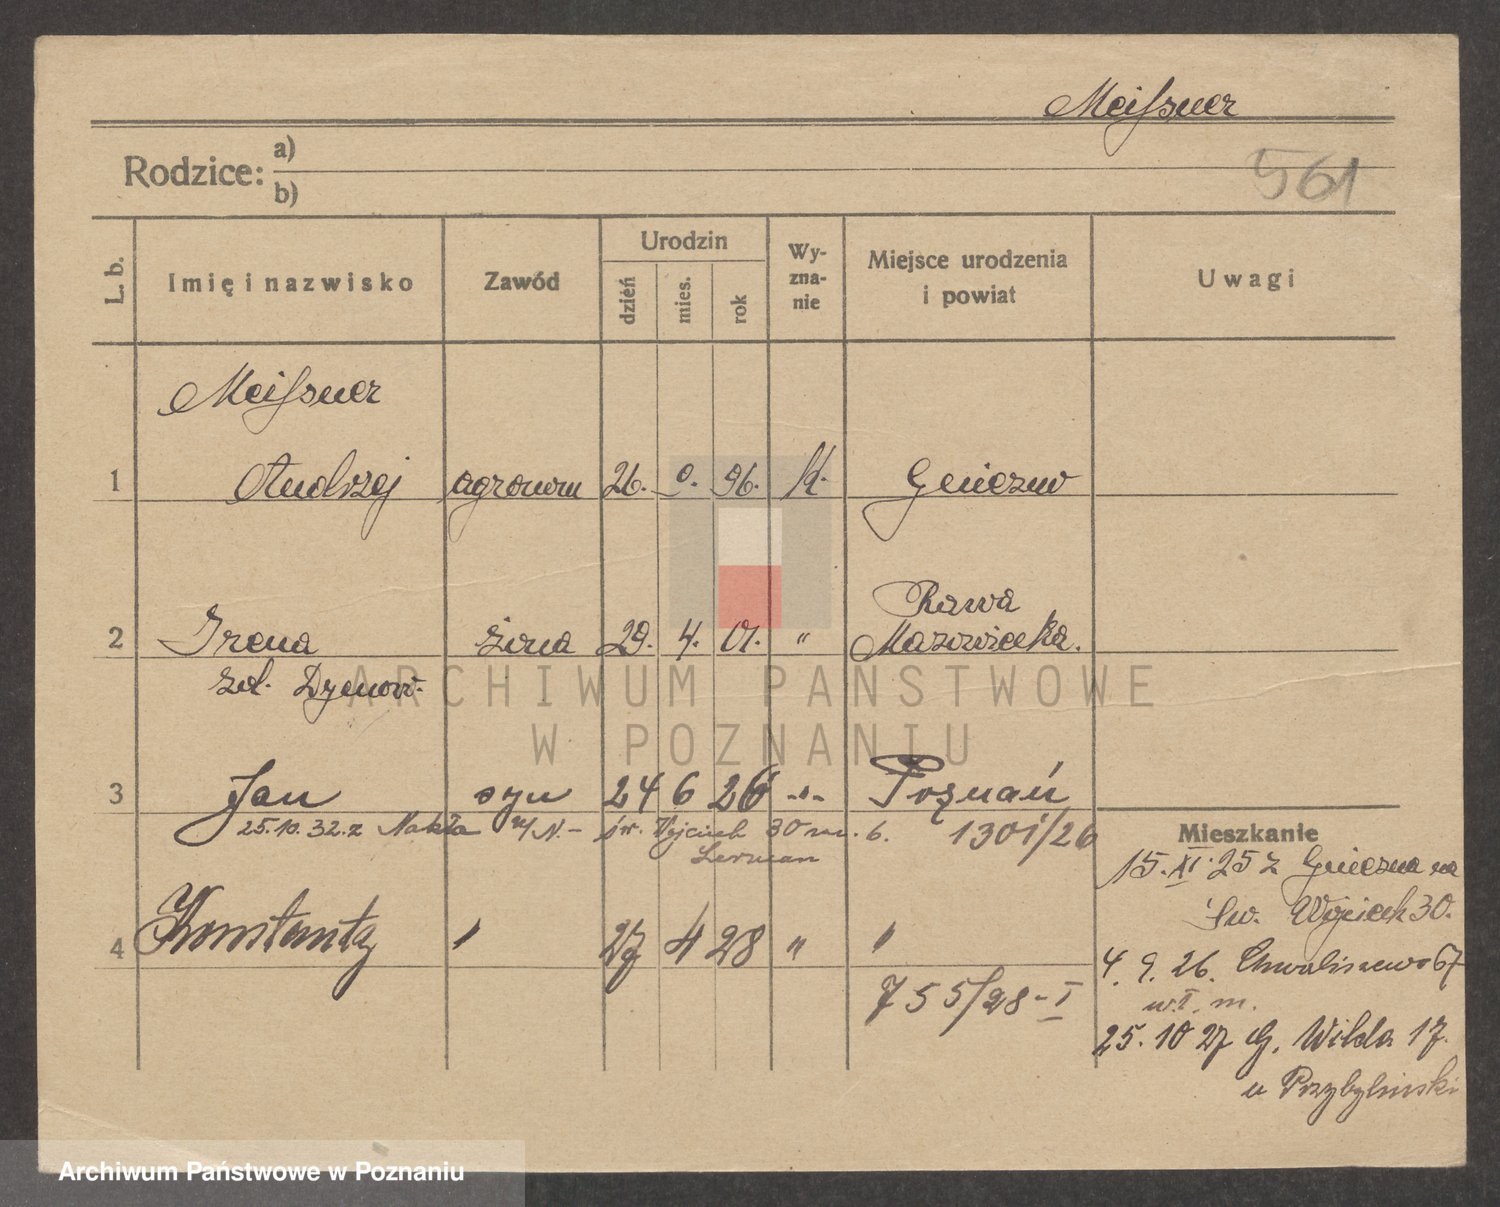 Meißner
Rodzice: a)
b)
561
L. b.
Imię i nazwisko
Zawód
Urodzin
dzień
mies.
rok
Wy-
zna-
nie
Miejsce urodzenia
i powiat
Uwagi
Meißner
1 Andrzej agronom 26. 9. 96. kt. Gniezno
Rawa
2 Irena żona 29. 4. 01. " Mazowiecka.
ARCHIWUM PAŃSTWOWE
W POZNANIU
3 Jan syn 24 6 26 -"- Poznań
25.10.32. z Nakła n/N. - św. Wojciech 30 m. 6. 1301/26
Lerman
Mieszkanie
15. XI. 25 z Gniezna na
Św. Wojciech 30.
4 Konstanty " 27 4 28 " "
4. 9. 26. Chwaliszewo 67
755/28-I
m.
25. 10 27 G. Wilda 17.
u Przybylinski
Archiwum Państwowe w Poznaniu